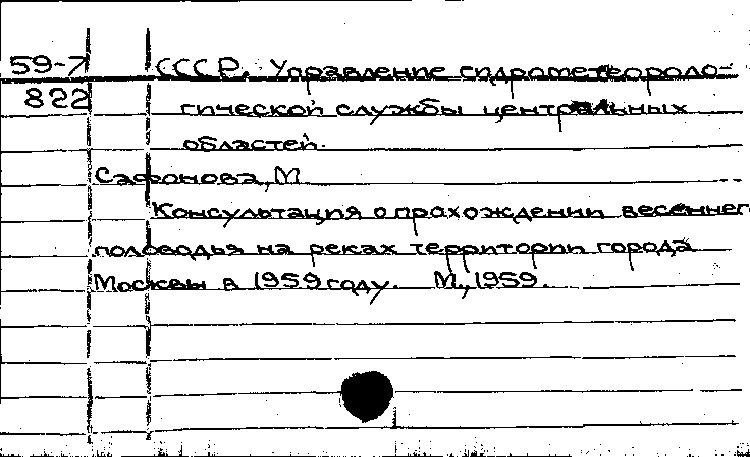 59-7 СССР. Управление гидрометеороло-
822 гической службы центральных
областей.
Сафонова, М
Консультация о прохождении весеннег
половодья на реках территории города
Москвы в 1959 году. М., 1959.